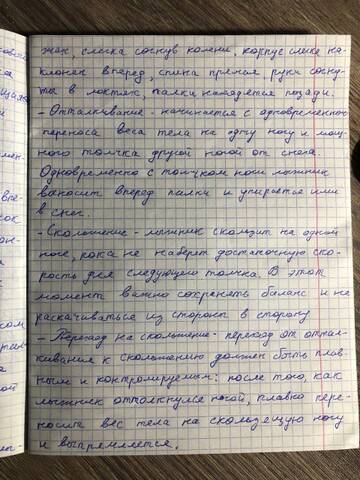 жах, слегка согнув колени, корпус слегка на-
клонен вперед, спина прямая, руки согну-
ты в локтях, палки находятся позади.
- Отталкивание - начинается с одновременного
переноса веса тела на одну ногу и мощ-
ного толчка другой ногой от снега.
Одновременно с толчком ноги лыжник
выносит вперед палки и упирается ими
в снег.
- Скольжение - лыжник скользит на одной
ноге, пока не наберет достаточную ско-
рость для следующего толчка. В этот
момент важно сохранять баланс и не
раскачиваться из стороны в сторону
- Переход на скольжение - переход от оттал-
кивания к скольжению должен быть плав-
ным и контролируемым: после того, как
лыжник оттолкнулся ногой, плавно пере-
носит вес тела на скользящую ногу
и выпрямляется.